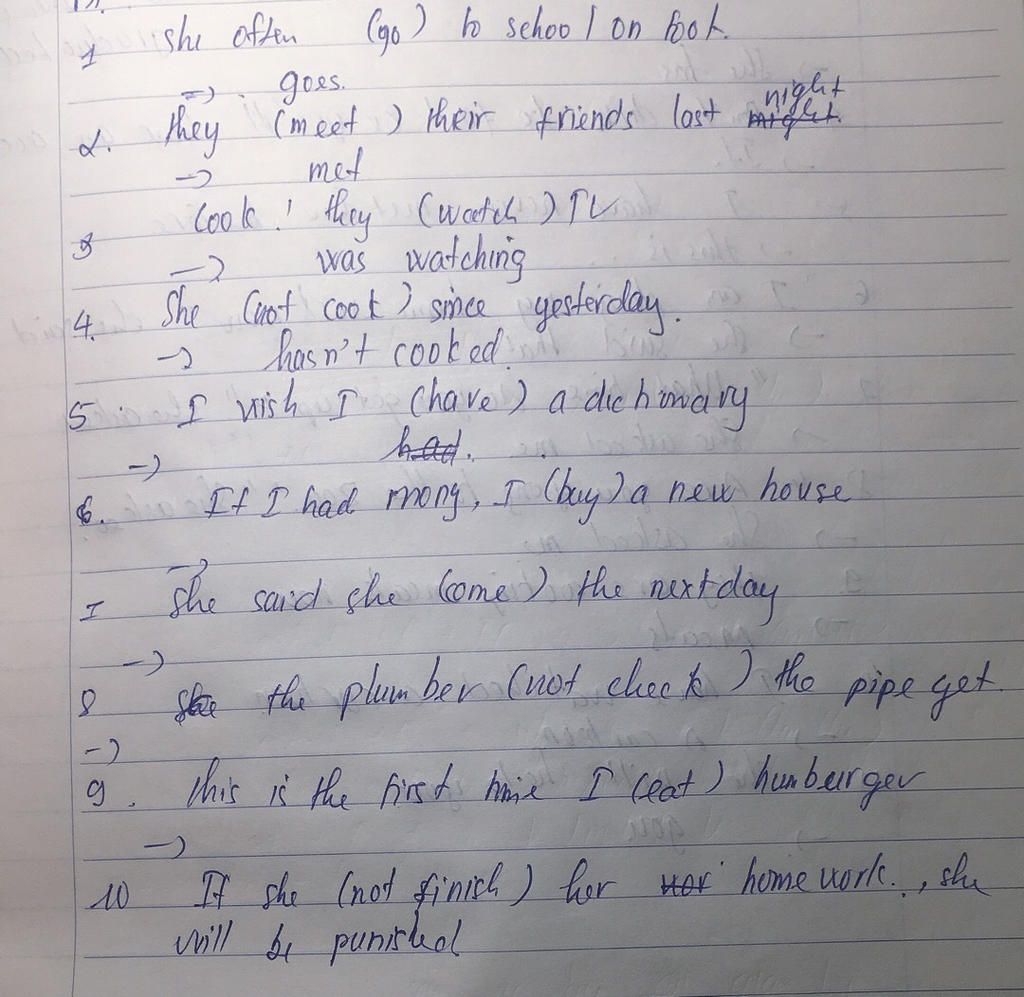 1 She often (go) to school on foot.
=> . goes.
night
2. they (meet) their friends last might.
-> met
3 Look! they (watch) TV
-> was watching
4. She (not cook) since yesterday.
-> hasn't cooked.
5. I wish I (have) a dictionary
-> had.
6. If I had mony, I (buy) a new house
->
7 She said she (come) the next day
->
8 she the plumber (not check) the pipe get.
->
9. this is the first time I (eat) humburger
->
10 If she (not finish) her her home work., she
will be punished